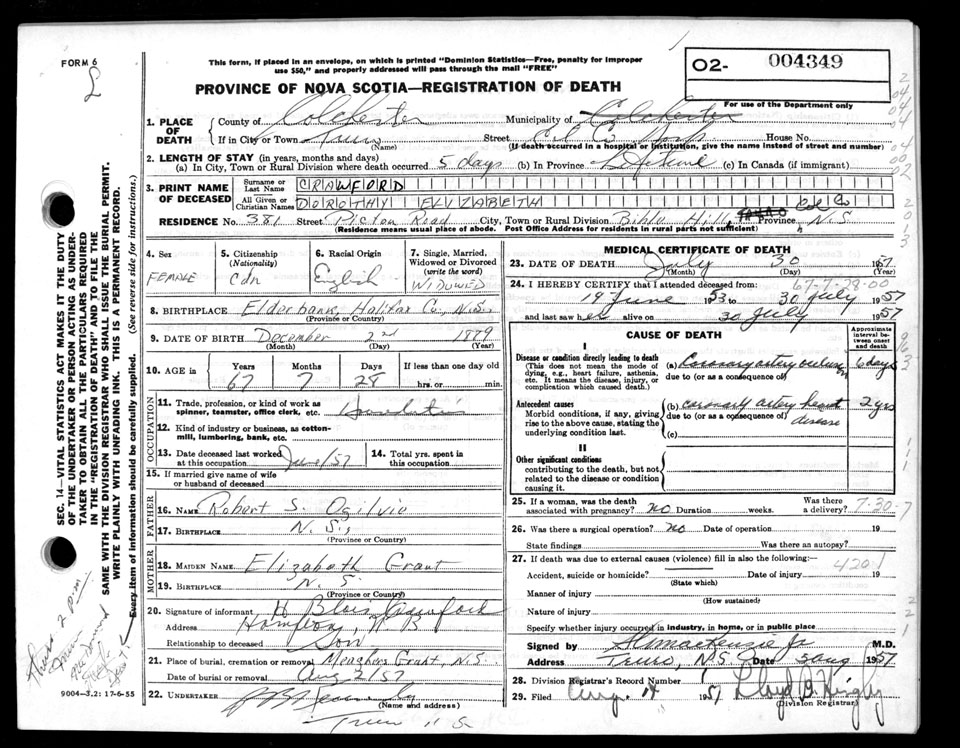 FORM 6
This form, if placed in an envelope, on which is printed "Dominion Statistics—Free, penalty for improper
use $50," and properly addressed will pass through the mail "FREE"
PROVINCE OF NOVA SCOTIA—REGISTRATION OF DEATH
O2- 004349
For use of the Department only
1. PLACE OF DEATH
County of Colchester Municipality of Colchester
If in City or Town Truro Street Col. Co. Hosp House No.
(Name) (If death occurred in a hospital or institution, give the name instead of street and number)
2. LENGTH OF STAY (in years, months and days)
(a) In City, Town or Rural Division where death occurred 5 days (b) In Province Lifetime (c) In Canada (if immigrant)
3. PRINT NAME OF DECEASED
Surname or Last Name CRAWFORD
All Given or Christian Names DOROTHY ELIZABETH
Col Co
RESIDENCE No. 381 Street Picton Road City, Town or Rural Division Bible Hill, N.S.
(Residence means usual place of abode. Post Office Address for residents in rural parts not sufficient)
4. Sex FEMALE
5. Citizenship (Nationality) Cdn
6. Racial Origin English
7. Single, Married, Widowed or Divorced (write the word) WIDOWED
8. BIRTHPLACE Elderbank Halifax Co., N.S.
(Province or Country)
9. DATE OF BIRTH December 2nd 1889
(Month) (Day) (Year)
10. AGE Years 67 Months 7 Days 28 If less than one day old hrs. or min.
OCCUPATION
11. Trade, profession, or kind of work as spinner, teamster, office clerk, etc.
12. Kind of industry or business, as cotton-mill, lumbering, bank, etc.
13. Date deceased last worked at this occupation June/57
14. Total yrs. spent in this occupation
15. If married give name of wife or husband of deceased
FATHER
16. NAME Robert S. Ogilvie
17. BIRTHPLACE N.S.
(Province or Country)
MOTHER
18. MAIDEN NAME Elizabeth Grant
19. BIRTHPLACE N.S.
(Province or Country)
20. Signature of informant H Blois Crawford
Address Hampton, N B
Relationship to deceased Son
21. Place of burial, cremation or removal Meaghers Grant, N.S.
Date of burial or removal Aug 2/57
22. UNDERTAKER
(Name and address)
Truro N S
MEDICAL CERTIFICATE OF DEATH
23. DATE OF DEATH July 30 1957
(Month) (Day) (Year)
67-7-28-00
24. I HEREBY CERTIFY that I attended deceased from:
19 June 1953 to 30 July 1957
and last saw her alive on 30 July 1957
CAUSE OF DEATH
Approximate interval between onset and death
I
Disease or condition directly leading to death
(This does not mean the mode of dying, e.g., heart failure, asthenia, etc. It means the disease, injury, or complication which caused death.)
(a) Coronary artery occlusion 6 days
due to (or as a consequence of)
Antecedent causes
Morbid conditions, if any, giving rise to the above cause, stating the underlying condition last.
(b) coronary artery heart disease 2 yrs
due to (or as a consequence of)
(c)
II
Other significant conditions
contributing to the death, but not related to the disease or condition causing it.
25. If a woman, was the death associated with pregnancy? no Duration weeks. Was there a delivery?
7-30-7
26. Was there a surgical operation? no Date of operation 19
State findings Was there an autopsy?
27. If death was due to external causes (violence) fill in also the following:—
4201
Accident, suicide or homicide? Date of injury 19
(State which)
Manner of injury
(How sustained)
Nature of injury
Specify whether injury occurred in industry, in home, or in public place
Signed by M.D.
Address Truro, N.S. Date 5 aug 1957
28. Division Registrar's Record Number
29. Filed Aug. 14 1957
(Division Registrar)
SEC. 14—VITAL STATISTICS ACT MAKES IT THE DUTY
OF THE UNDERTAKER OR PERSON ACTING AS UNDER-
TAKER TO OBTAIN ALL THE PARTICULARS REQUIRED
IN THE "REGISTRATION OF DEATH" AND TO FILE THE
SAME WITH THE DIVISION REGISTRAR WHO SHALL ISSUE THE BURIAL PERMIT.
WRITE PLAINLY WITH UNFADING INK. THIS IS A PERMANENT RECORD.
Every item of information should be carefully supplied. (See reverse side for instructions.)
9004-3.2: 17-6-55